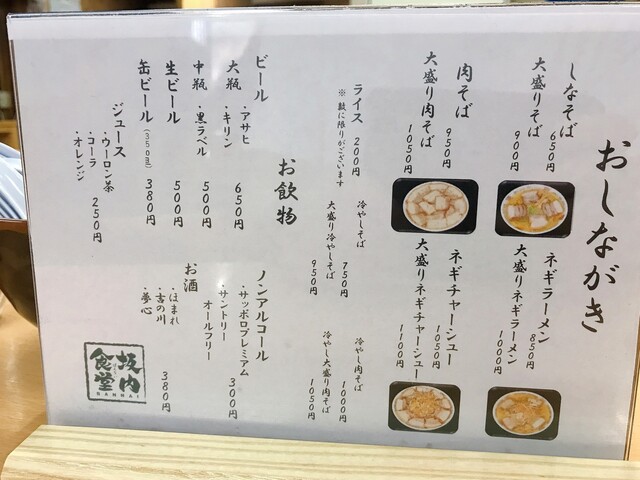 おしながき
しなそば 650円
大盛りそば 900円
ネギラーメン 850円
大盛りネギラーメン 1000円
肉そば 950円
大盛り肉そば 1050円
ネギチャーシュー 1050円
大盛りネギチャーシュー 1100円
ライス 200円
※ 数に限りがございます
冷やしそば 750円
大盛り冷やしそば 950円
冷やし肉そば 1000円
冷やし大盛り肉そば 1050円
お飲物
ビール
大瓶 ・アサヒ 650円
・キリン
中瓶 ・黒ラベル 500円
生ビール 500円
缶ビール (350ml) 380円
ジュース 250円
・ウーロン茶
・コーラ
・オレンジ
ノンアルコール 300円
・サッポロプレミアム
・サントリー
オールフリー
お酒 380円
・ほまれ
・吉の川
・夢心
坂内
食堂
BANNAI